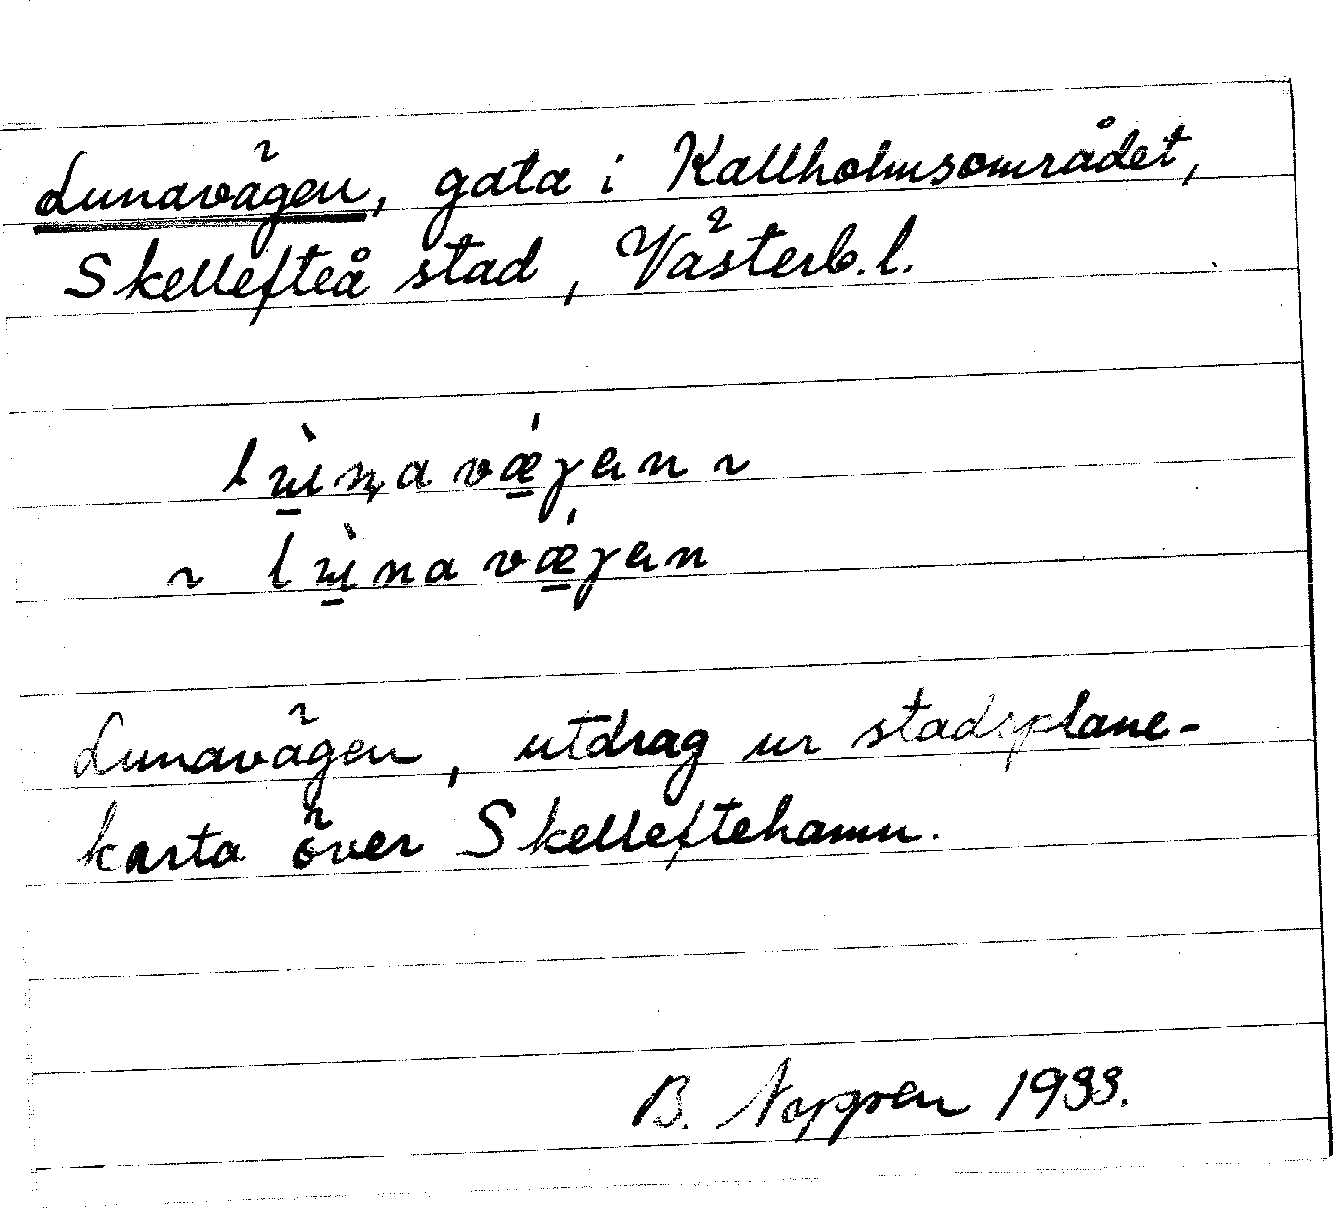 Lunavägen, gata i Kallholmsområdet,
Skellefteå stad, Västerb. l.
lɯ̱̀n̡avǽ̱γen ~
~ lɯ̱̀navǽ̱γen
Lunavägen, utdrag ur stadsplane-
karta över Skelleftehamn.
B. 1933.